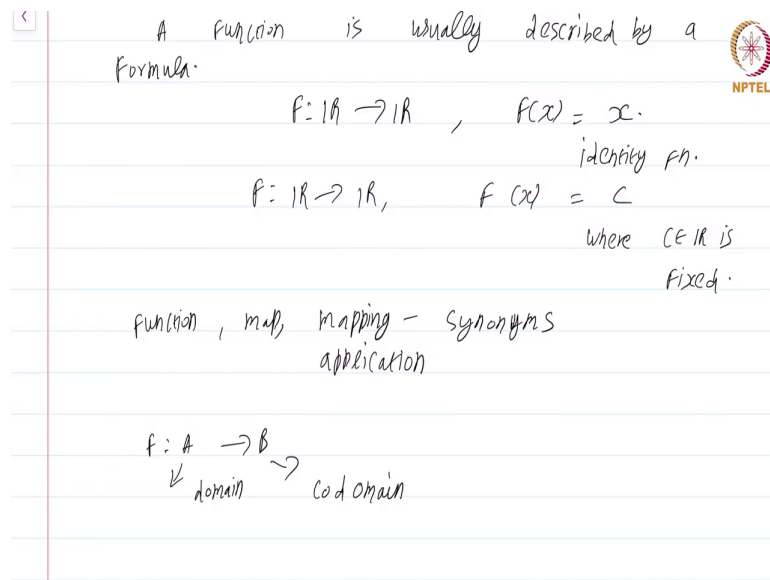 A function is usually described by a
formula.
NPTEL
F: IR → IR , F(x) = x.
identity fn.
F: IR → IR, F (x) = C
where C ∈ IR is
fixed.
Function, map, mapping - synonyms
application
f: A → B
domain codomain